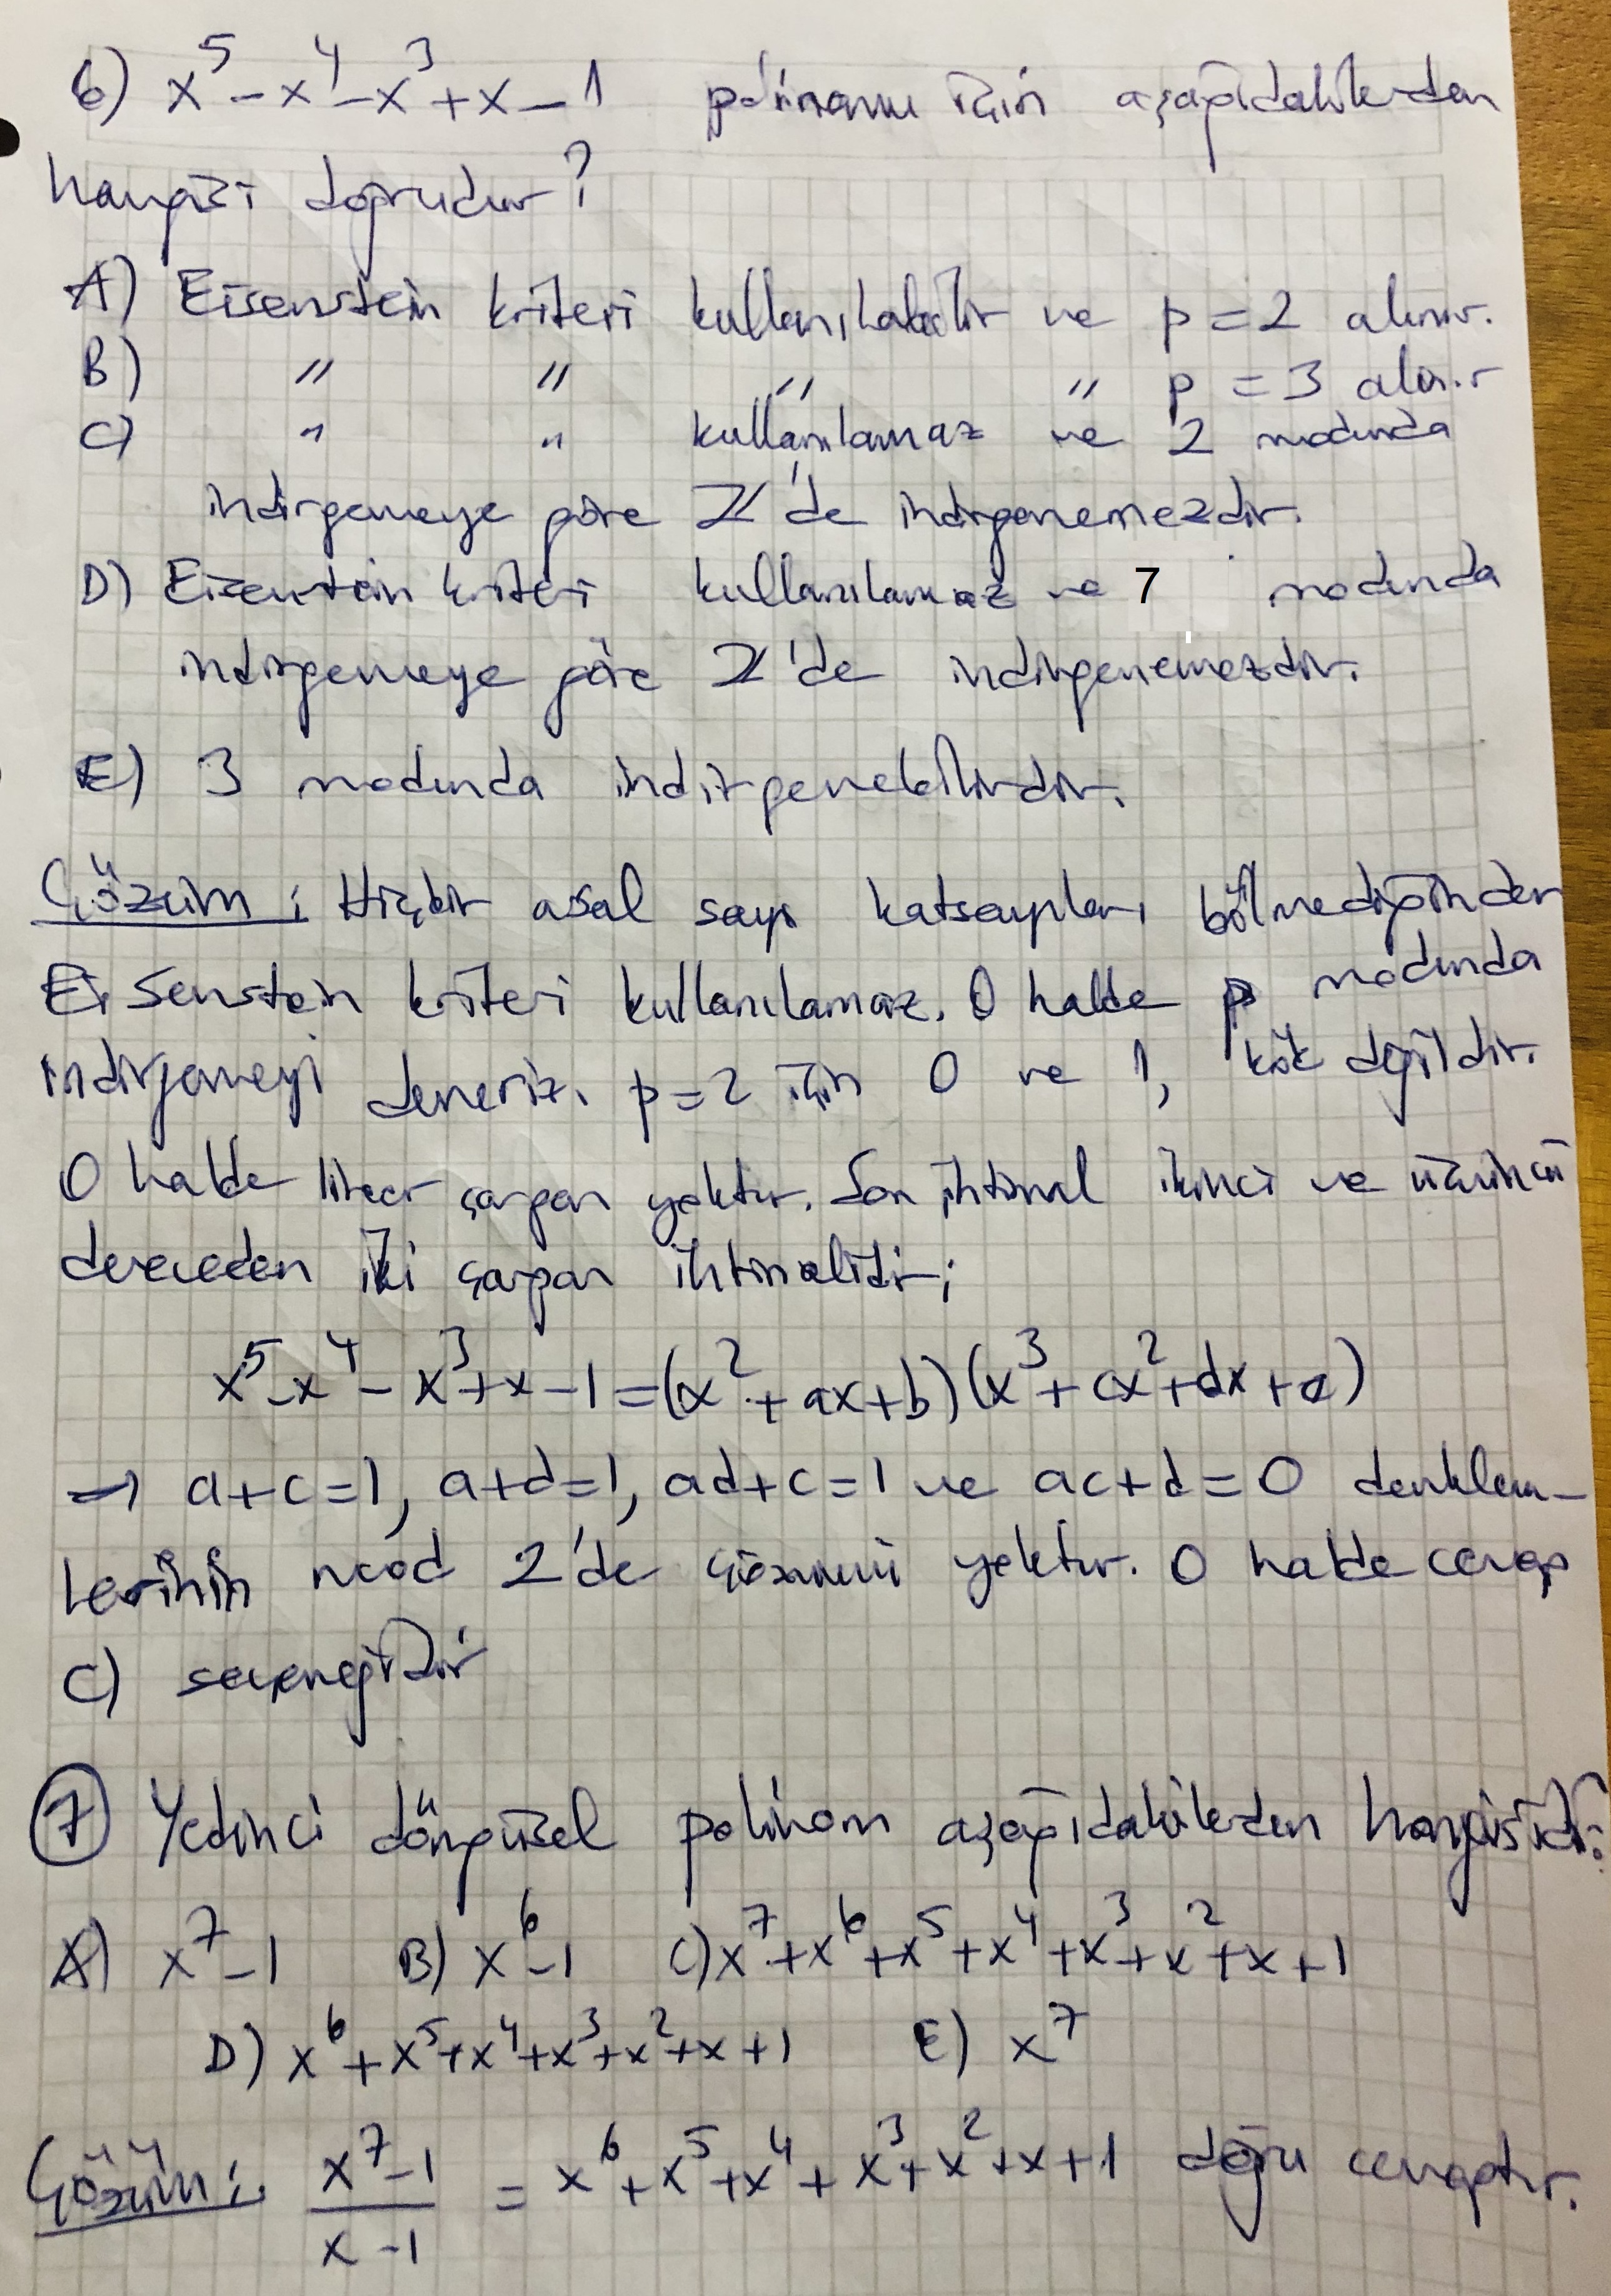 6) x⁵-x⁴-x³+x-1 polinomu için aşağıdakilerden
hangisi doğrudur?
A) Eisenstein kriteri kullanılabilir ve p=2 alınır.
B) " " " " p=3 alınır
C) " " kullanılamaz ve 2 modunda
indirgemeye göre ℤ'de indirgenemezdir.
D) Eisenstein kriteri kullanılamaz ve 7 modunda
indirgemeye göre ℤ'de indirgenemezdir.
E) 3 modunda indirgenebilirdir.
Çözüm: Hiçbir asal sayı katsayıları bölmediğinden
Eisenstein kriteri kullanılamaz. O halde p modunda
indirgemeyi deneriz. p=2 için 0 ve 1, kök değildir.
O halde lineer çarpan yoktur. Son ihtimal ikinci ve üçüncü
dereceden iki çarpan ihtimalidir;
x⁵-x⁴-x³+x-1=(x²+ax+b)(x³+cx²+dx+e)
⇒ a+c=1, a+d=1, ad+c=1 ve ac+d=0 denklem-
lerinin mod 2'de çözümü yoktur. O halde cevap
C) seçeneğidir
7 Yedinci döngüsel polinom aşağıdakilerden hangisidir?
A) x⁷-1 B) x⁶-1 C) x⁷+x⁶+x⁵+x⁴+x³+x²+x+1
D) x⁶+x⁵+x⁴+x³+x²+x+1 E) x⁷
Çözüm: (x⁷-1)/(x-1) = x⁶+x⁵+x⁴+x³+x²+x+1 doğru cevaptır.